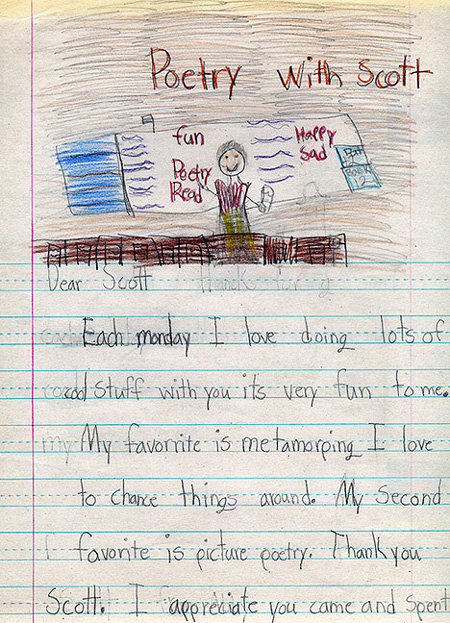 Poetry with Scott
fun
Happy
Sad
Poetry
Read
Book
12
Dear Scott Thanks for
Each monday I love doing lots of
cool stuff with you its very fun to me.
My favorrite is metamorping I love
to chance things around. My Second
favorite is picture poetry. Thank you
Scott. I appreciate you came and spent